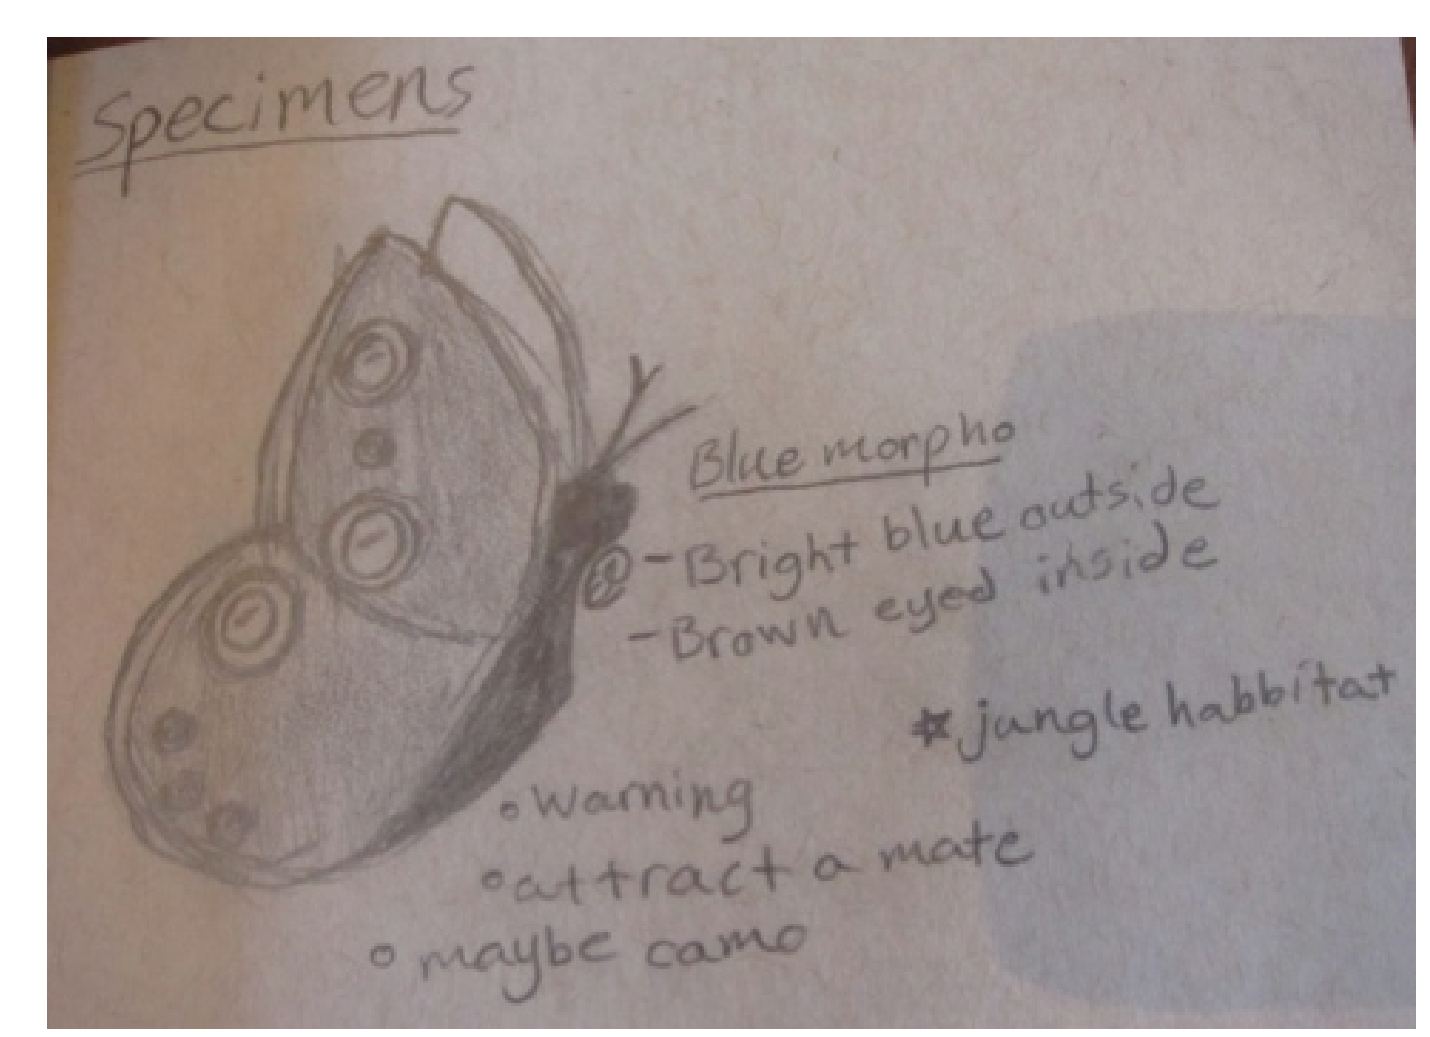 Specimens
Blue morpho
-Bright blue outside
-Brown eyed inside
*jungle habbitat
°Warning
°attract a mate
°maybe camo